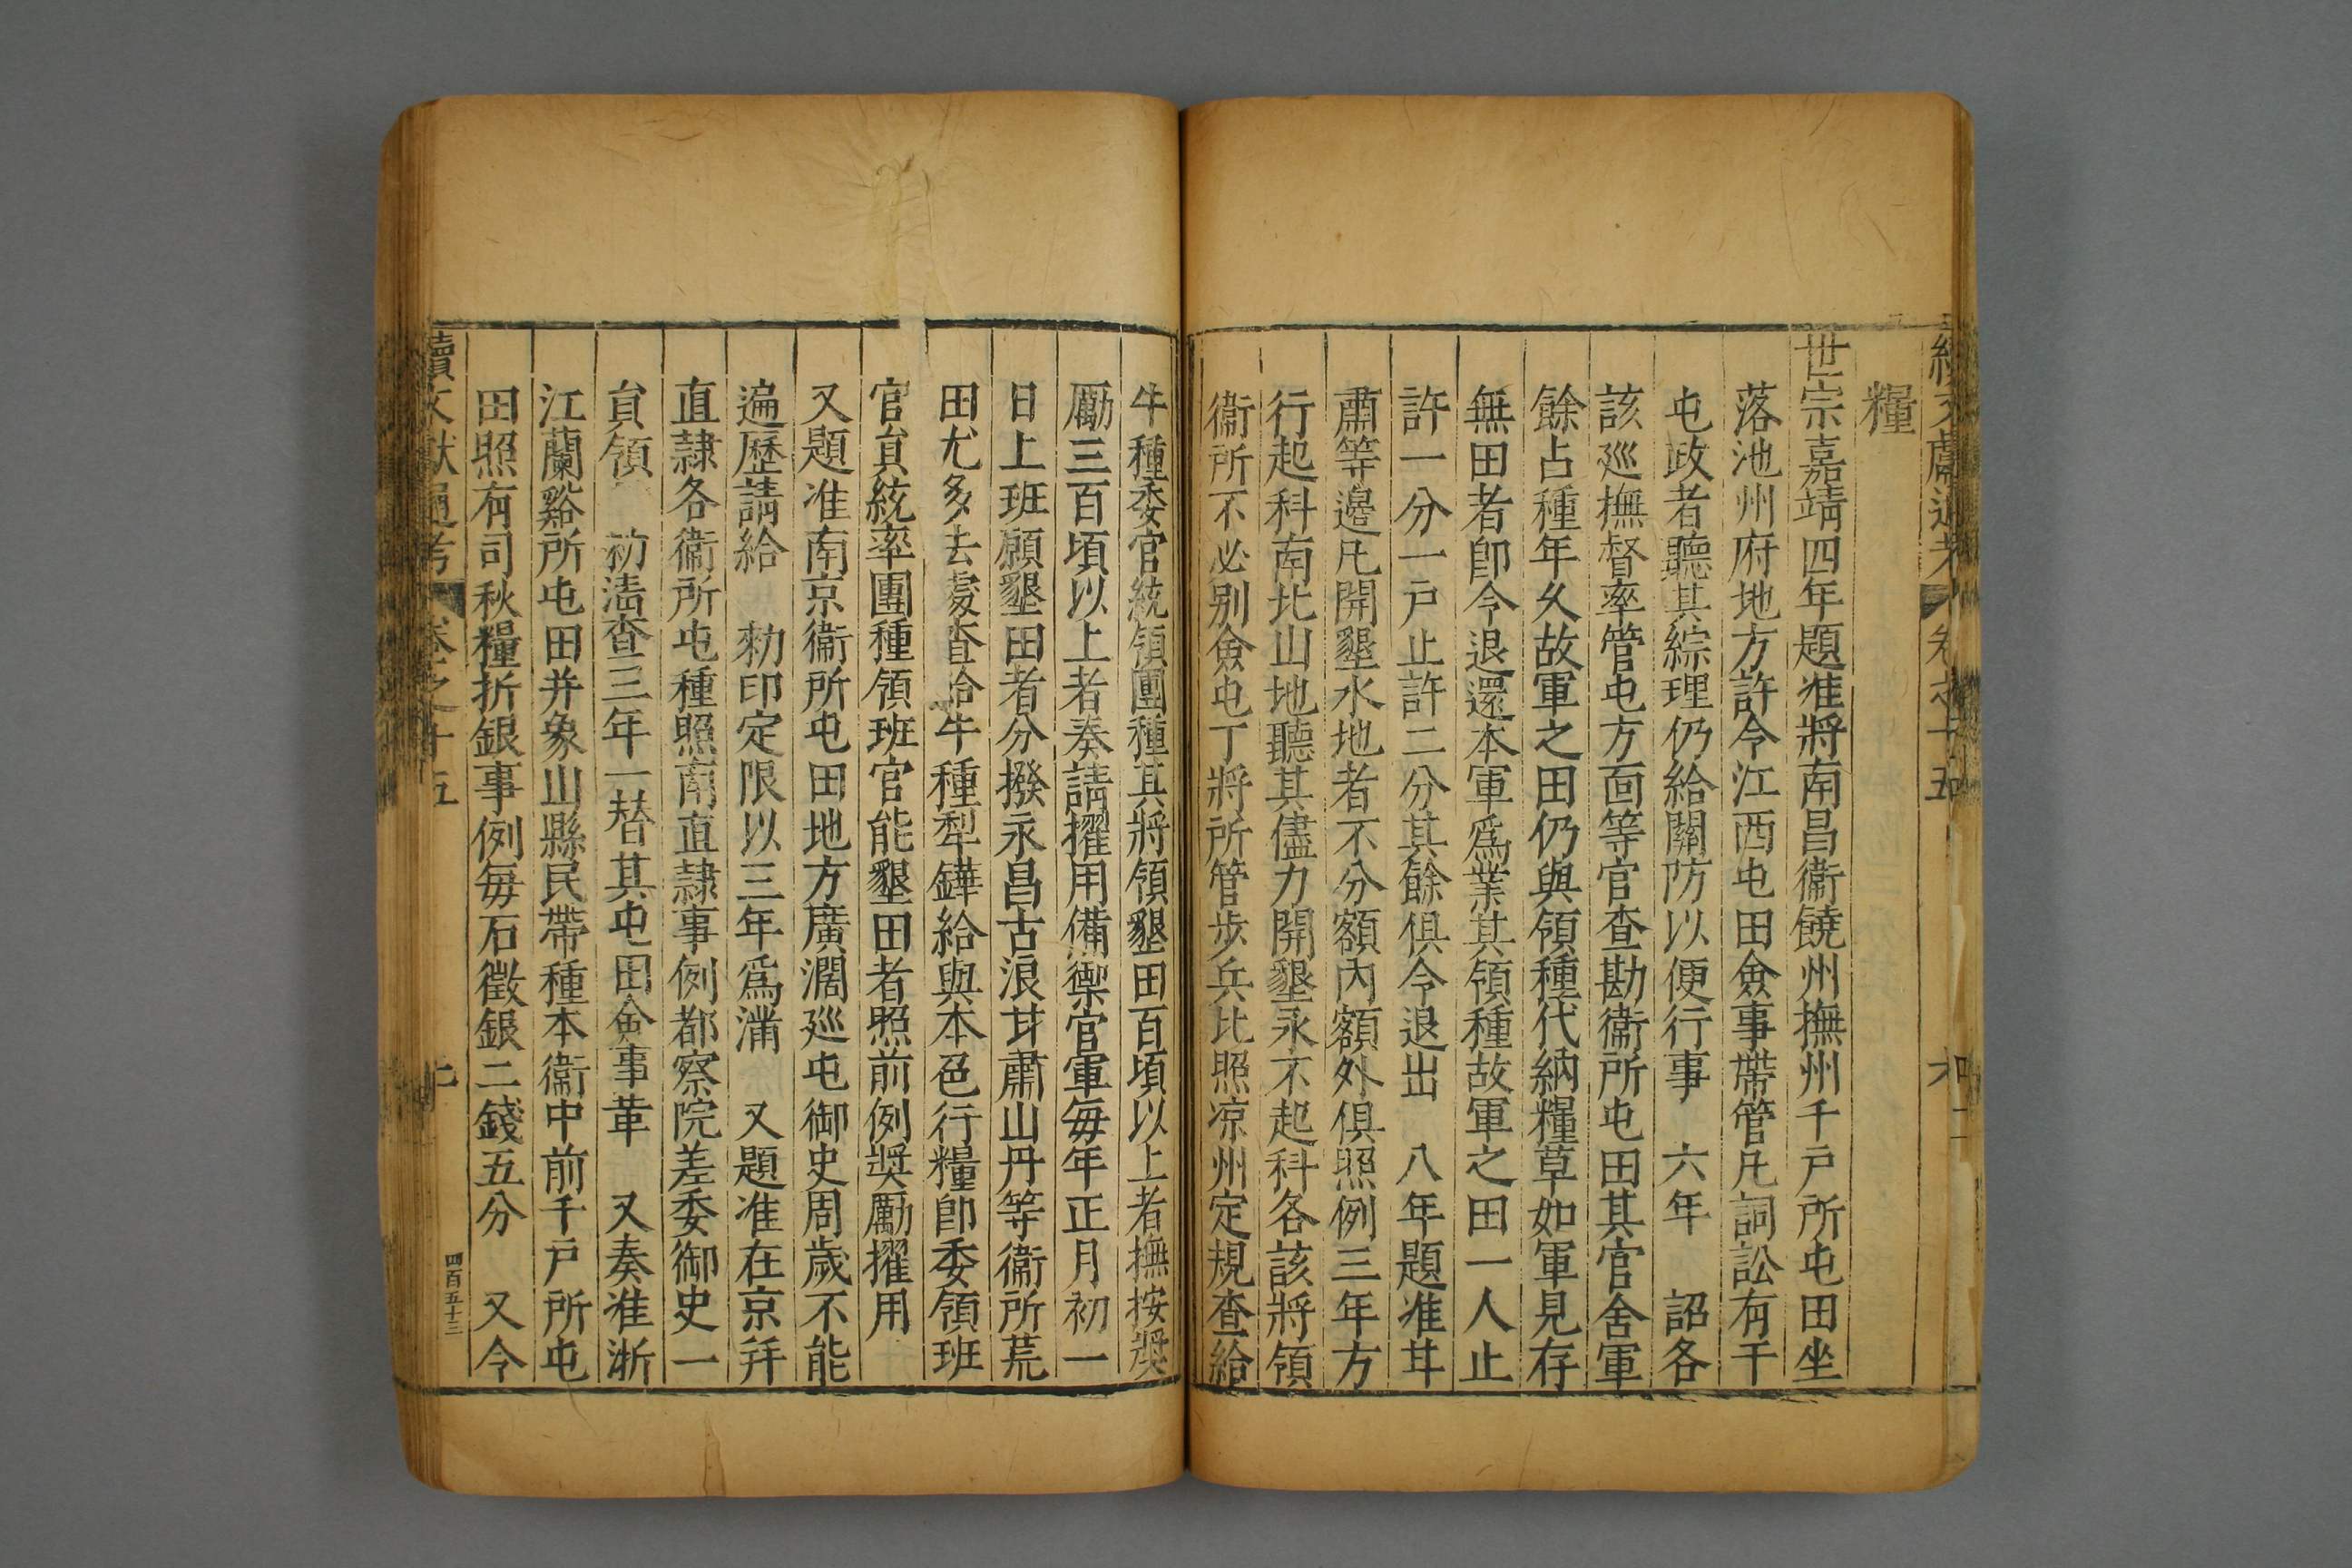 續文獻通考 卷之十五
糧
世宗嘉靖四年題准將南昌衞饒州撫州千戸所屯田坐
落池州府地方許令江西屯田僉事帶管凡詞訟有干
屯政者聽其綜理仍給關防以便行事 六年 詔各
該廵撫督率管屯方面等官查勘衞所屯田其官舍軍
餘占種年久故軍之田仍與領種代納糧草如軍見存
無田者卽令退還本軍爲業其領種故軍之田一人止
許一分一戸止許二分其餘俱令退出 八年題准甘
肅等邊凡開墾水地者不分額內額外俱照例三年方
行起科南北山地聽其儘力開墾永不起科各該將領
衞所不必别僉屯丁將所管步兵比照凉州定規查給
牛種委官統領團種其將領墾田百頃以上者撫按奬
勵三百頃以上者奏請擢用備禦官軍每年正月初一
日上班願墾田者分撥永昌古浪甘肅山丹等衞所荒
田尤多去處查給牛種犁鏵給與本色行糧卽委領班
官員統率團種領班官能墾田者照前例奬勵擢用
又題准南京衞所屯田地方廣濶廵屯御史周歲不能
遍歷請給 勑印定限以三年爲滿 又題准在京幷
直隷各衞所屯種照南直隷事例都察院差委御史一
員領 勑清查三年一替其屯田僉事革 又奏准浙
江蘭谿所屯田并象山縣民帶種本衞中前千戸所屯
田照有司秋糧折銀事例每石徵銀二錢五分 又令
續文獻通考 卷之十五
四百五十三